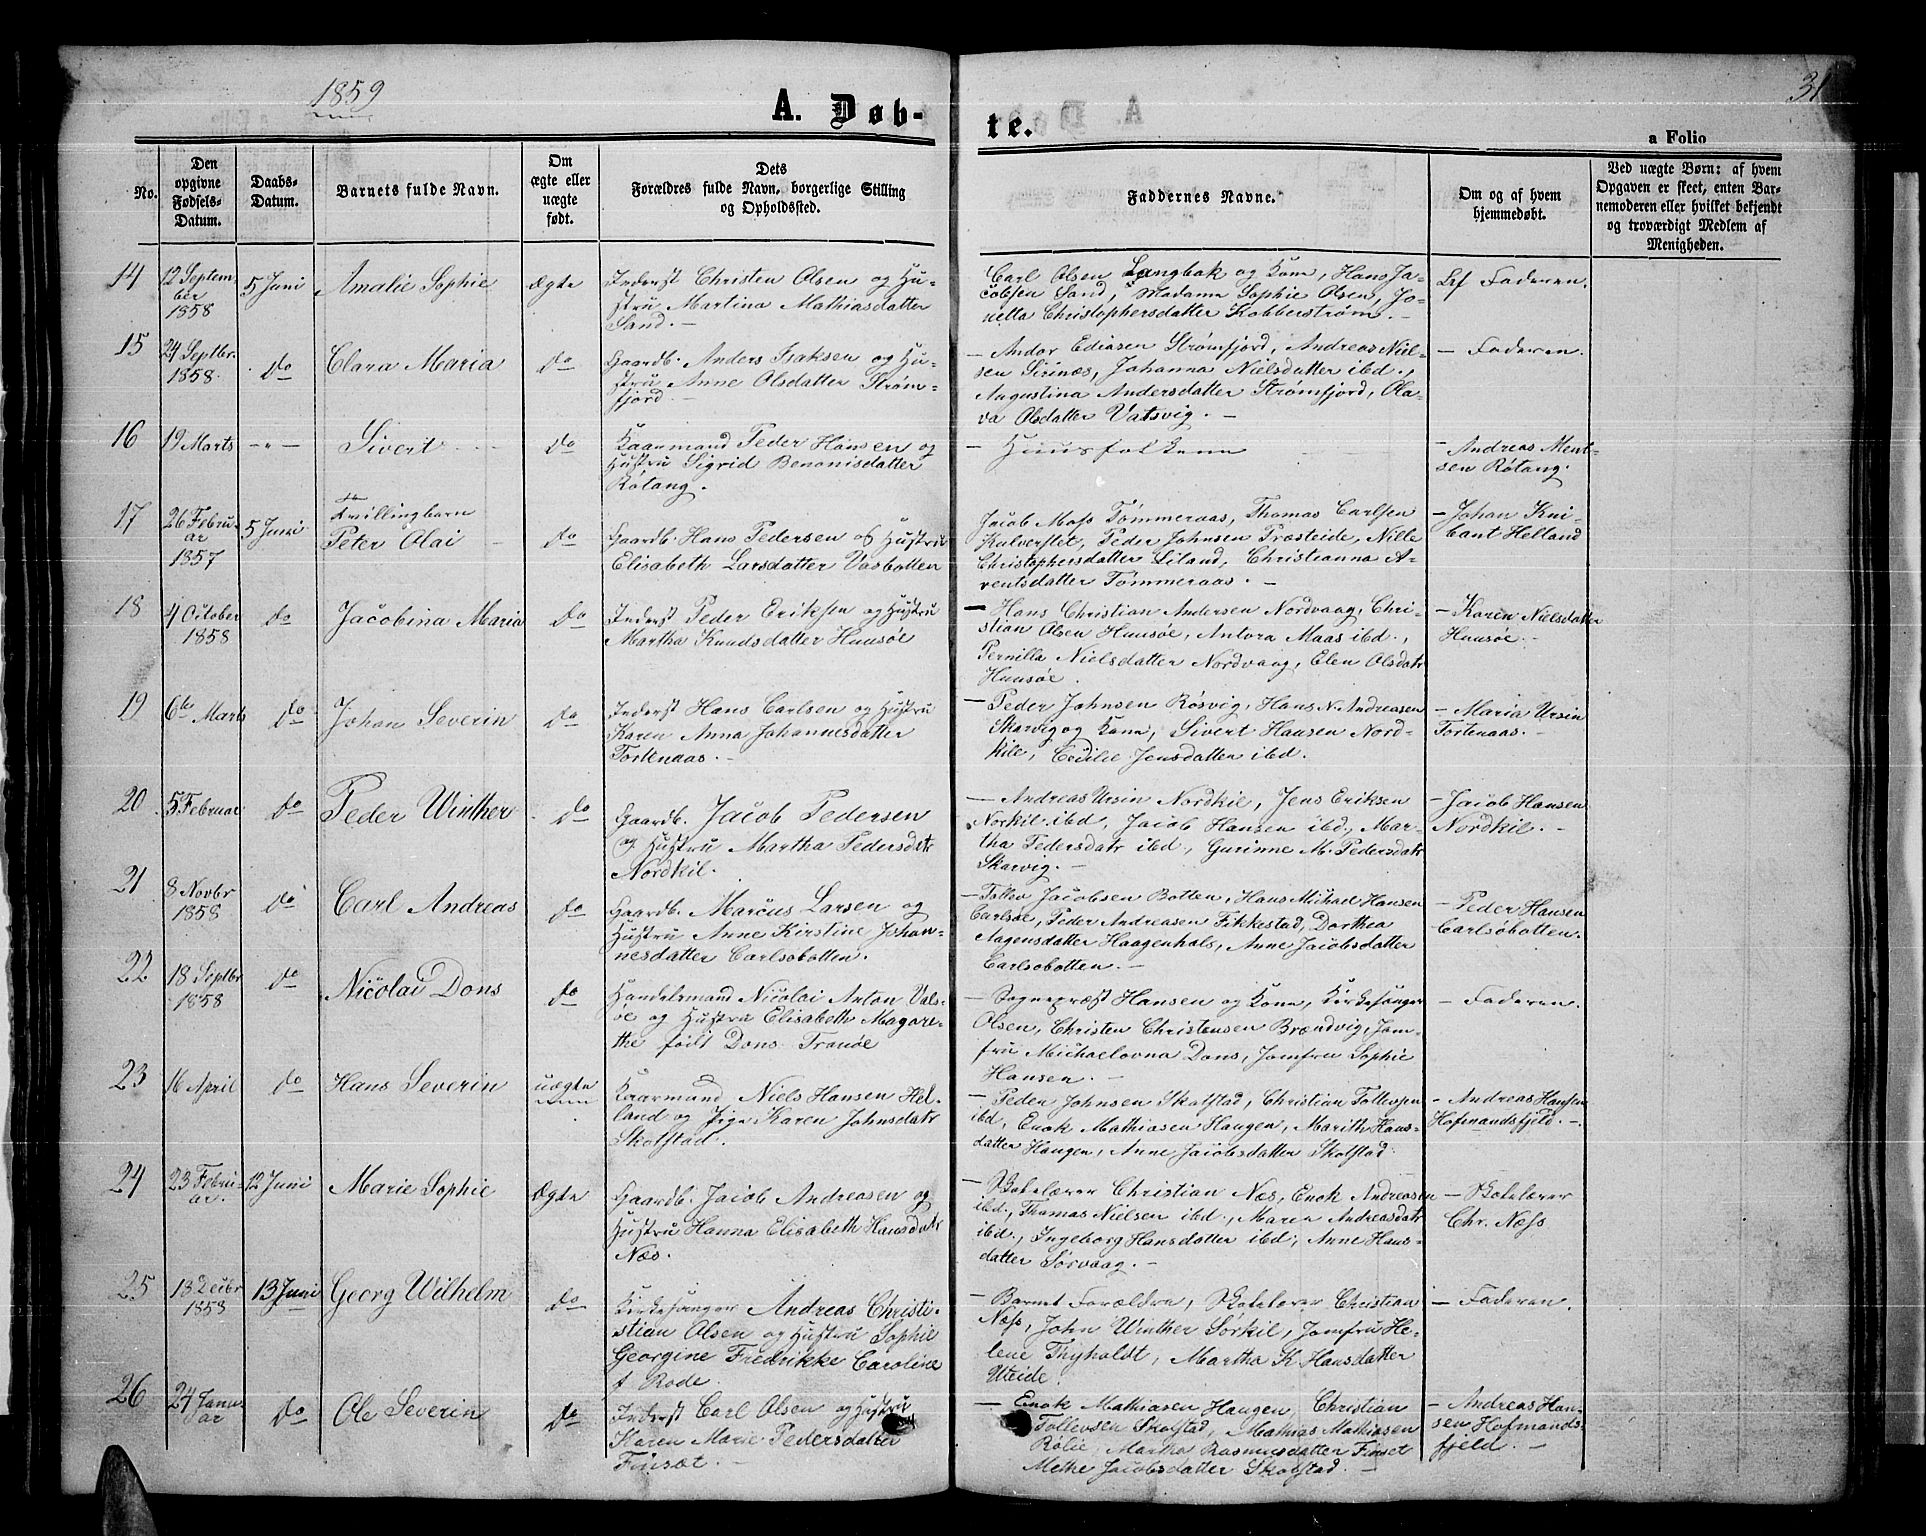 1859
31
A. Døb-
te.
a Folio
No.
Den
opgivne
Fødsels-
Datum.
Daabs-
Datum.
Barnets fulde Navn.
Om
ægte eller
uægte
født.
Dets
Forældres fulde Navn, borgerlige Stilling
og Opholdssted.
Faddernes Navne.
Om og af hvem
hjemmedøbt.
Ved uægte Børn: af hvem
Opgaven er skeet, enten Bar-
nemoderen eller hvilket bekjendt
og troværdigt Medlem af
Menigheden.
14
12 Septem-
ber
1858
5 Juni
Amalie Sophie
Ægte
Inderst Christen Olsen og Hu-
stru Martina Mathiasdatter
Sand. —
Carl Olsen Langbak og Kone, Hans Ja-
cobsen Sand, Madame Sophie Olsen, Jo-
netta Christophersdatter Kobberstrøm. —
Faderen.
15
24 Septbr.
1858.
do
Clara Maria
do
Gaardb. Anders Isaksen og Hu-
stru Anne Olsdatter Strøm-
fjord. —
— Andor Ediasen Strømfjord, Andreas Niel-
sen Sirinæs, Johanna Nielsdatter ibd.,
Augustina Andersdatter Strømfjord, Ola-
va Olsdatter Vatsvig. —
— Faderen.
16
19 Marts
— " —
Sivert
do
Kaarmand Peder Hansen og
Hustru Sigrid Benonisdatter
Røtang.
— Huusfolkene
— Andreas Ment-
sen Røtang.
17
26 Febru-
ar
1857
5 Juni
Tvillingbarn
Peter Olai
do
Gaardb. Hans Pedersen og Hustru
Elisabeth Larsdatter Vasbotten
Jacob Moss Tømmeraas, Thomas Carlsen
Kulverstet, Peder Johnsen Træsteide, Nille
Christophersdatter Liland, Christianna A-
rentsdatter Tømmeraas. —
— Johan Kni-
Cant Helland
18
4 October
1858
do
Jacobina Maria
do
Inderst Peder Eriksen og Hustru
Martha Knudsdatter Huusøe
— Hans Christian Andersen Nordvaag, Chri-
stian Olsen Huusøe, Antora Maas ibd.,
Pernilla Nielsdatter Nordvaag, Elen Olsdatr
Huusøe.
— Karen Nielsdatter
Huusøe. —
19
6te Marts
do
Johan Severin
do
Inderst Hans Carlsen og Hustru
Karen Anna Johannesdatter
Fortenaas. —
— Peder Johnsen Røsvig, Hans N. Andreasen
Skarvig og Kone, Sivert Hansen Nord-
kile, Cecilie Jensdatter ibd.
— Maria Ursin
Fortenaas. —
20
5 Februar
do
Peder Winther
do
Gaardb. Jacob Pedersen
og Hustru Martha Pedersdatr
Nordkil.
— Andreas Ursin Nordkil, Jens Eriksen
Norkil ibd, Jacob Hansen ibd., Mar-
tha Pedersdatr ibd, Gurinne M. Pedersdatr
Skarvig. —
— Jacob Hansen
Nordkil. —
21
8 Novbr
1858
do
Carl Andreas
do
Gaardb. Marcus Larsen og
Hustru Anne Kirstine Johan-
nesdatter Carlsøbotten.
— Tollev Jacobsen Botten, Hans Michael Hansen
Carlsøe, Peder Andreasen Fikkestad, Dorthea
Aagensdatter Haagenhals, Anne Jacobsdatter
Carlsobotten. —
— Peder Hansen
Carlsøbotten.
22
18 Septbr
1858
do
Nicolai Dons
do
Handelsmand Nicolai Anton Vals-
øe og Hustru Elisabeth Magare-
the født Dons Tranøe
— Sognepræst Hansen og Kone, Kirkesanger
Olsen, Christen Christensen Brændvig, Jom-
fru Michaelovna Dons, Jomfru Sophie
Hansen. —
— Faderen.
23
16 April
do
Hans Severin
uægte
Kaarmand Niels Hansen Hel-
land og Pige Karen Johnsdatr
Skolstad.
— Peder Johnsen Skolstad, Christian Tollevsen
ibd, Enok Mathiasen Haugen, Marith Hans-
datter Haugen, Anne Jacobsdatter Skolstad
— Andreas Hansen
Hofmandsfjeld. —
24
23 Febru-
ar.
12 Juni
Marie Sophie
Ægte
Gaardb. Jacob Andreasen og
Hustru Hanna Elisabeth Hansdatr
Næs.
— Skolelærer Christian Næs, Enok Andreasen
ibd., Thomas Nielsen ibd., Maren Andreasdatr
ibd., Ingeborg Hansdatter ibd., Anne Hans-
datter Sørvaag. —
— Skolelærer
Chr. Næss
25
13 Decbr
1858
13 Juni
Georg Wilhelm
do
Kirkesanger Andreas Christi-
stian Olsen og Hustru Sophie
Georgine Fredrikke Caroline
f. Rode.
— Barnets Forældre, Skolelærer Christian
Næss, John Winther Sørkil, Jomfru He-
lene Thyholdt, Martha K. Hansdatter
Uteide.
— Faderen.
26
24 Janu-
ar
do
Ole Severin
do
Inderst Carl Olsen og Hustru
Karen Marie Pedersdatter
Finsæt. —
— Enok Mathiasen Haugen, Christian
Tollevsen Skolstad, Mathias Mathiasen
Rølie, Martha Rasmusdatter Finset
Methe Jacobsdatter Skolstad. —
— Andreas Han-
sen Hofmands-
fjeld. —